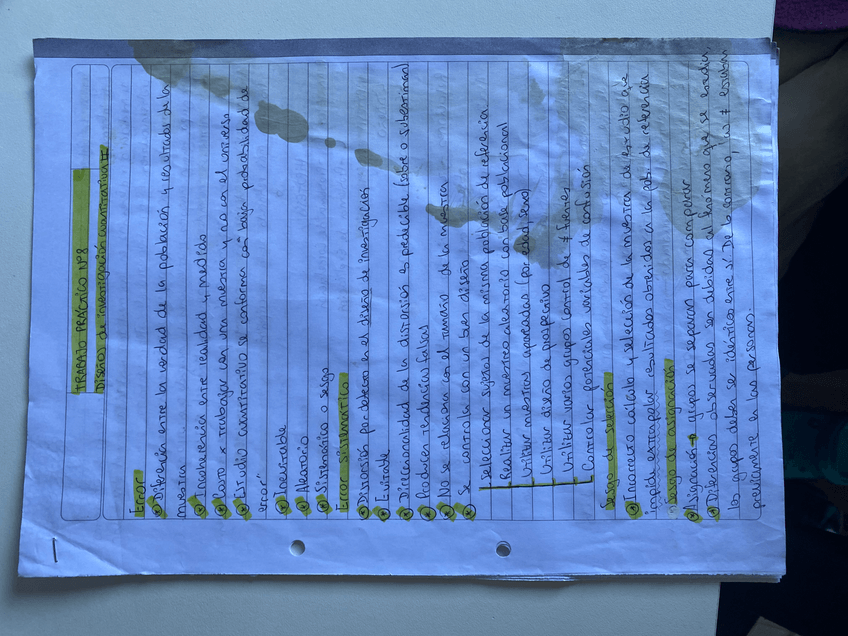 TRABAJO PRÁCTICO Nº8
Diseños de investigación cuantitativa II
Error
Diferencia entre la verdad de la población y resultados de la
muestra
Incoherencia entre realidad y medido
Pasa x trabajar con una muestra y no con el universo
"Estudio cuantitativo se conforma con baja probabilidad de
error"
Inevitable
Aleatorio
Sistemático o sesgo
Error sistemático
Distorsión por defecto en el diseño de investigación
Evitable
Direccionalidad de la distorsión es predecible (sobre o subestimas)
Producen tendencias falsas
No se relaciona con el tamaño de la muestra
Se controla con un buen diseño
Seleccionar sujetos de la misma población de referencia
Realizar un muestreo aleatorio con base poblacional
Utilizar muestras apareadas (por edad, sexo)
Utilizar diseño de prospectivo
Utilizar varios grupos control de ≠ fuentes
Controlar potenciales variables de confusión
Sesgo de selección
Incorrecto cálculo y selección de la muestra de estudio que
impide extrapolar resultados obtenidos a la pob. de referencia
Sesgo de asignación
Asignación → grupos se separan para comparar
Diferencias observadas son debidas al fenómeno que se estudia
los grupos deben ser idénticos entre sí. De lo contrario, las ≠ estaban
previamente en las personas.